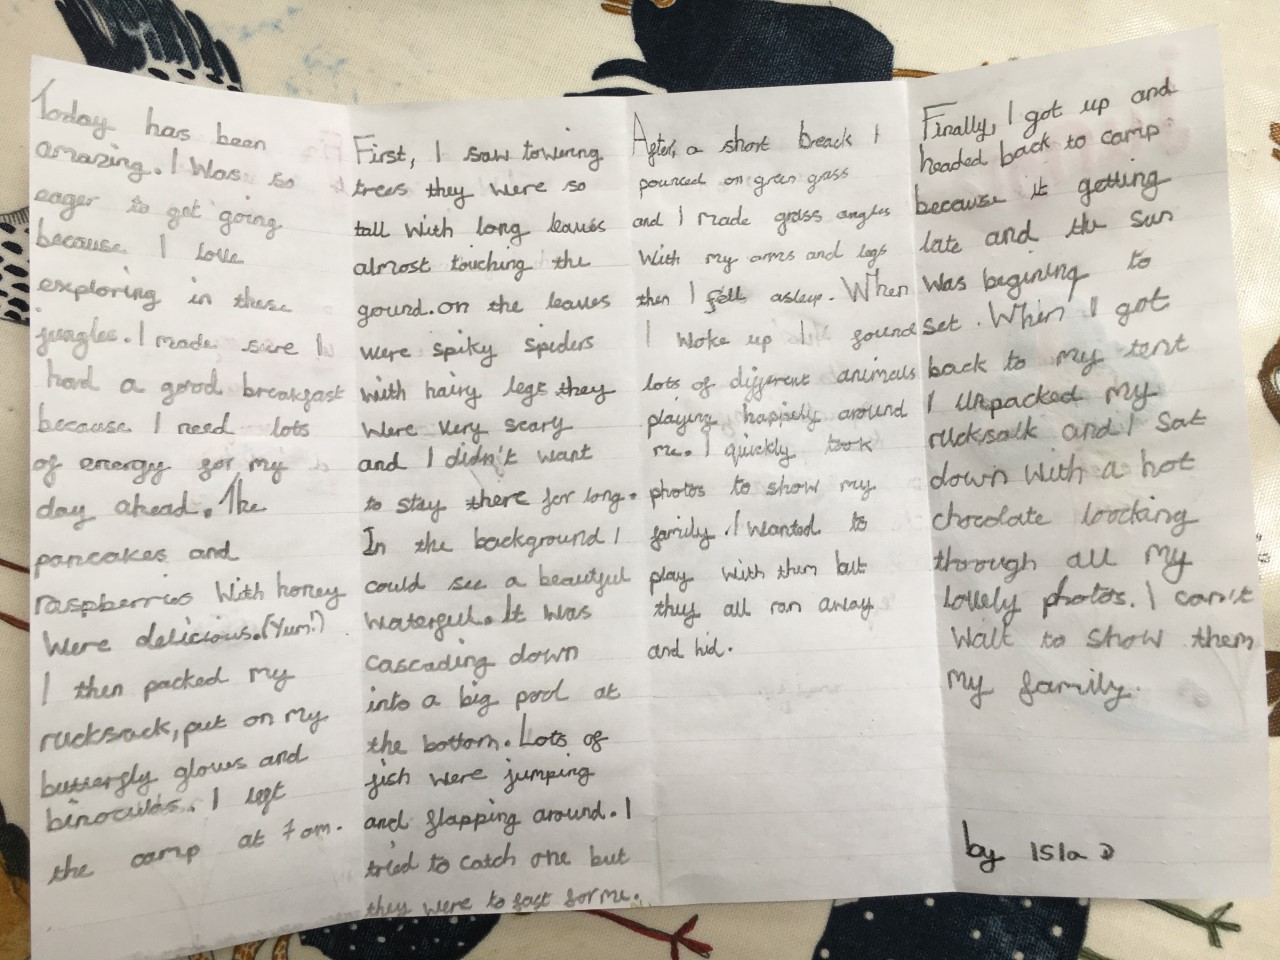 Today has been
amazing. I Was so
eager to get going
because I love
exploring in these
jungles. I made sure I
had a good breakfast
because I need lots
of energy for my
day ahead. The
pancakes and
raspberries With honey
Were delicious. (Yum!)
I then packed my
rucksack, put on my
butterfly gloves and
I left
the camp at 7am.
First, I saw towering
trees they were so
tall With long leaves
almost touching the
gound. on the leaves
were spiky spiders
with hairy legs they
were very scary
and I didn't want
to stay there for long.
In the background I
could see a beautyful
It was
cascading down
into a big pool at
the bottom. Lots of
fish were jumping
and flapping around. I
tried to catch one but
they were to fast for me.
After, a short breack I
pounced on green grass
and I made grass angles
With my arms and legs
then I fell asleep. When
I Woke up I found
lots of different animals
playing happiely around
me. I quickly took
photos to show my
family. I wanted to
play with them but
they all ran away
and hid.
Finally, I got up and
headed back to camp
because it getting
late and the sun
was begining to
set. When I got
back to my tent
I unpacked my
rucksalk and I Sat
down With a hot
chocolate loocking
through all my
lovely photos. I can't
Wait to show them
my family.
by Isla D